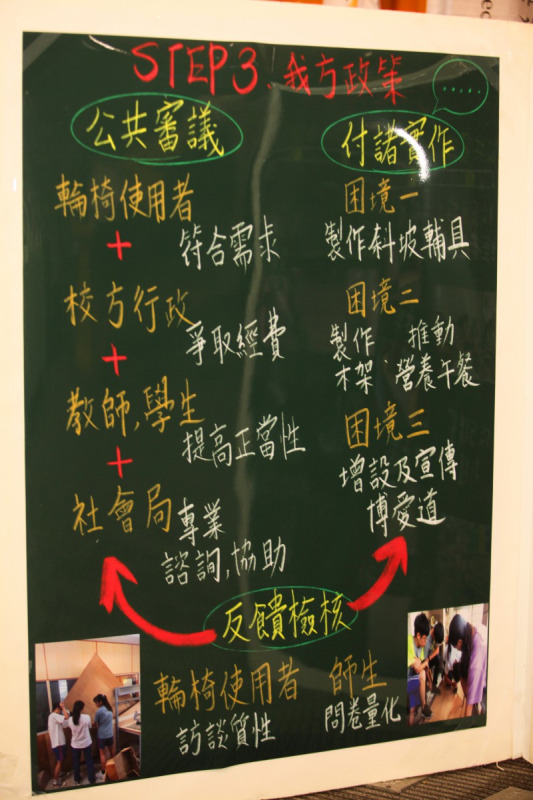 STEP3. 我方政策
.....
公共審議
輪椅使用者
+
符合需求
校方行政
+
爭取經費
教師,學生
+
提高正當性
社會局
專業
諮詢,協助
付諸實作
困境一
製作斜坡輔具
困境二
製作
木架
推動
營養午餐
困境三
增設及宣傳
博愛道
反饋檢核
輪椅使用者
訪談質性
師生
問卷量化